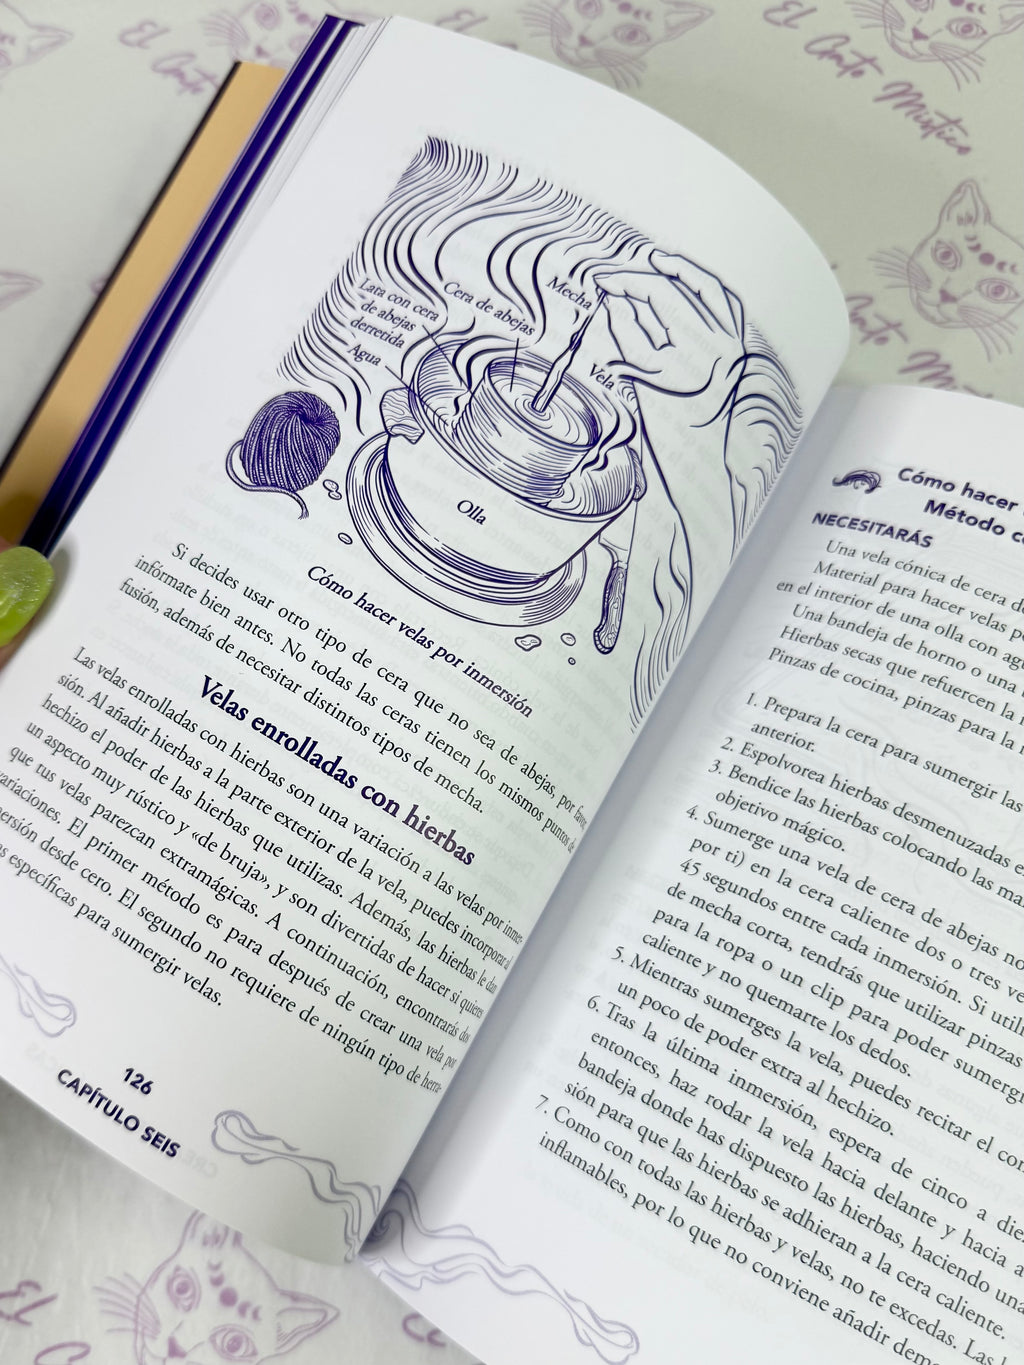 El Gato Místico
Lata con cera
de abejas
derretida
Cera de abejas
Mecha
Agua
Vela
Olla
Cómo hacer velas por inmersión
Si decides usar otro tipo de cera que no sea de abejas, por favor,
infórmate bien antes. No todas las ceras tienen los mismos puntos de
fusión, además de necesitar distintos tipos de mecha.
Velas enrolladas con hierbas
Las velas enrolladas con hierbas son una variación a las velas por inmer-
sión. Al añadir hierbas a la parte exterior de la vela, puedes incorporar al
hechizo el poder de las hierbas que utilizas. Además, las hierbas le dan
un aspecto muy rústico y «de bruja», y son divertidas de hacer si quieres
que tus velas parezcan extramágicas. A continuación, encontrarás dos
variaciones. El primer método es para después de crear una vela por
mersión desde cero. El segundo no requiere de ningún tipo de herra-
específicas para sumergir velas.
126
CAPÍTULO SEIS
Cómo hacer
Método
NECESITARÁS
Una vela cónica de cera
Material para hacer velas
en el interior de una olla con
Una bandeja de horno o una
Hierbas secas que refuercen la
Pinzas de cocina, pinzas para la
1. Prepara la cera para sumergir las
anterior.
2. Espolvorea hierbas desmenuzadas
3. Bendice las hierbas colocando las
objetivo mágico.
4. Sumerge una vela de cera de abejas
por ti) en la cera caliente dos o tres
45 segundos entre cada inmersión. Si
de mecha corta, tendrás que utilizar pinzas
para la ropa o un clip para poder
caliente y no quemarte los dedos.
5. Mientras sumerges la vela, puedes recitar el
un poco de poder extra al hechizo.
6. Tras la última inmersión, espera de cinco a
entonces, haz rodar la vela hacia delante y hacia
bandeja donde has dispuesto las hierbas, haciendo
sión para que las hierbas se adhieran a la cera caliente.
7. Como con todas las hierbas y velas, no te excedas. Las
inflamables, por lo que no conviene añadir